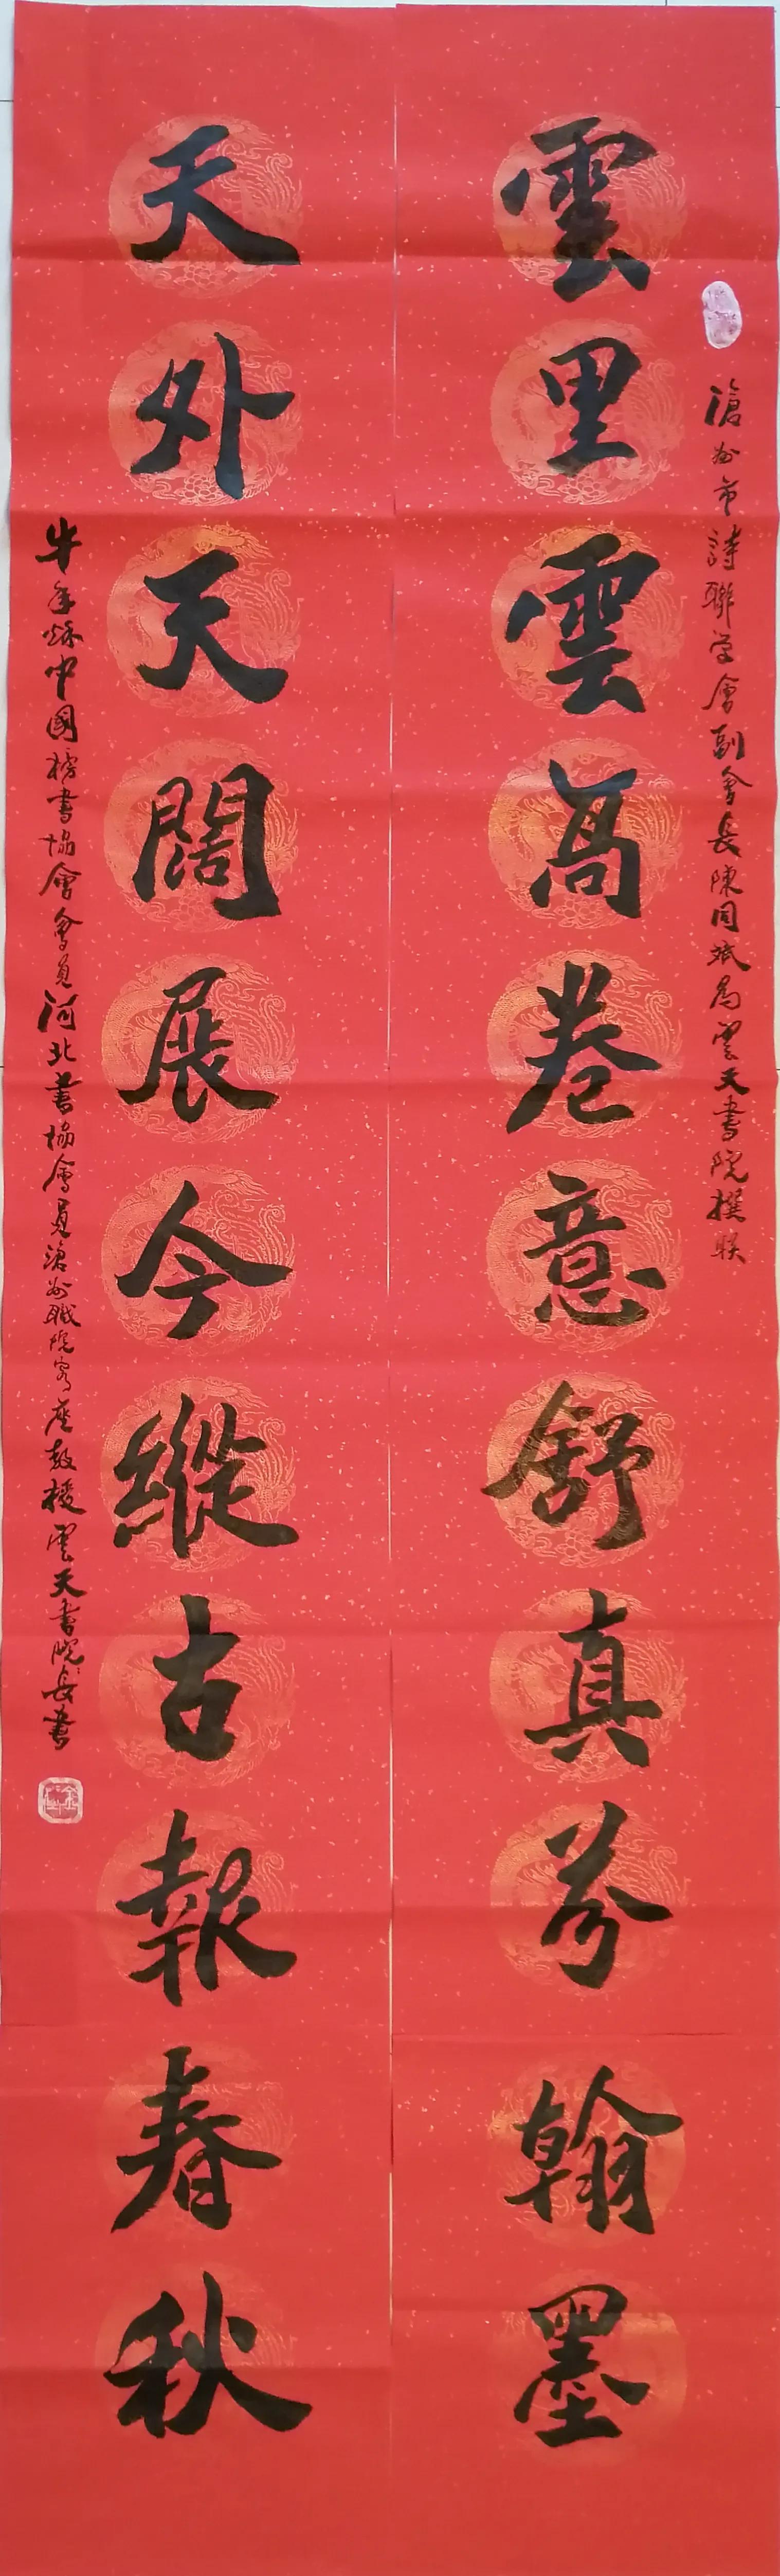 滄州市詩聯学會副會長陳同斌為雲天書院撰联
雲里雲高卷意舒真芬翰墨
天外天闊展今縱古報春秋
牛年秋中國榜書協會會員河北書協會員滄州職院客座教授雲天書院院長書